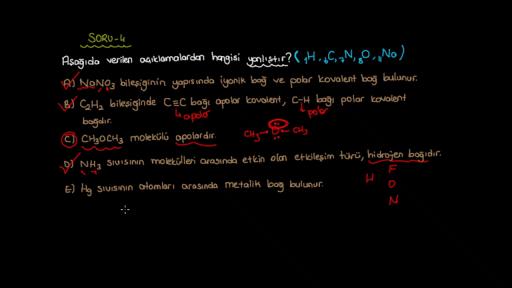 SORU-4
Aşağıda verilen açıklamalardan hangisi yanlıştır? (₁H, ₆C, ₇N, ₈O, ₁₁Na)
A) NaNO₃ bileşiğinin yapısında iyonik bağ ve polar kovalent bağ bulunur.
B) C₂H₂ bileşiğinde C≡C bağı apolar kovalent, C-H bağı polar kovalent
apolar polar
bağdır.
C) CH₃OCH₃ molekülü apolardır. CH₃-O-CH₃
D) NH₃ sıvısının molekülleri arasında etkin olan etkileşim türü, hidrojen bağıdır.
H F
O
N
E) Hg sıvısının atomları arasında metalik bağ bulunur.